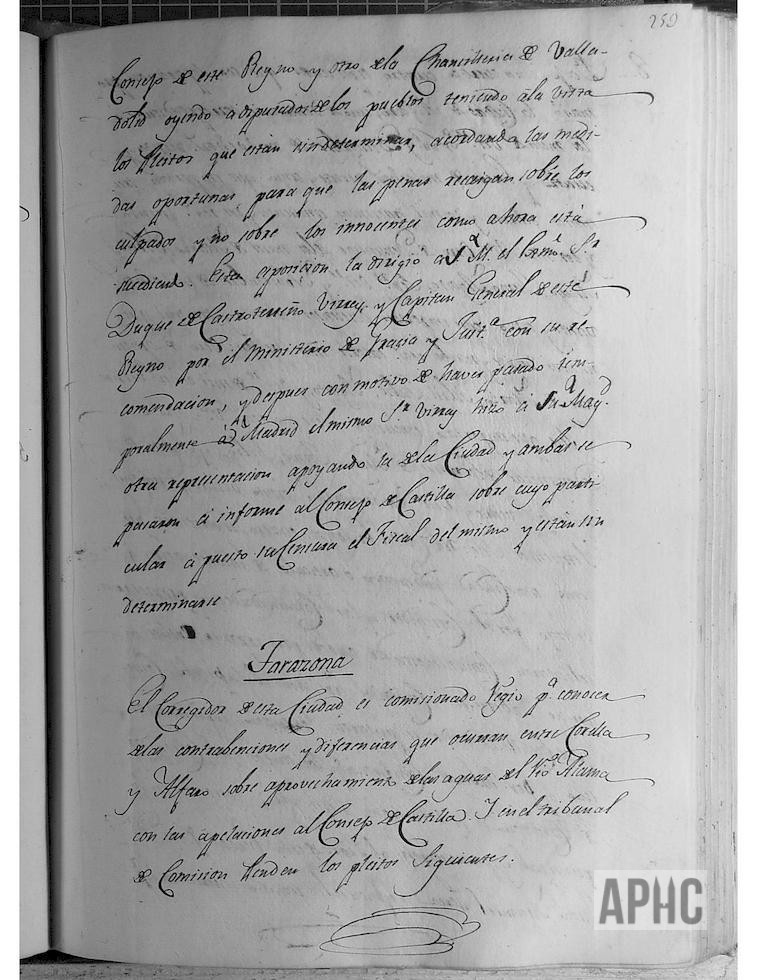 259
Consejo de este Reyno y otro dela Chancilleria de Valla-
dolid oyendo a diputados de los pueblos teniendo ala vista
los Pleitos que estan sin determinar, acordando las medi-
das oportunas para que las penas recaigan sobre los
culpados y no sobre los innocentes como ahora está
sucediendo. Esta exposicion la dirigió a S. M. el Exmo. Sr
Duque de Castroterreño Virrey y Capitan General de este
Reyno por el Ministerio de Gracia y Justa. con su re-
comendacion, y despues con motivo de haver pasado tem-
poralmente á Madrid el mismo Sr Virrey hizo á Su Magd.
otra representacion apoyando la de la Ciudad y ambas se
pasaron á informe al Consejo de Castilla sobre cuyo parti
cular á puesto su Censura el Fiscal del mismo y están sin
determinarse
Tarazona
El Corregidor de esta Ciudad es comisionado Regio pa. conocer
de las contrabenciones y diferencias que ocurran entre Corella
y Alfaro sobre aprovechamiento de las aguas del Rio Alama
con las apelaciones al Consejo de Castilla. Y en el tribunal
de Comision penden los pleitos siguientes.
APHC